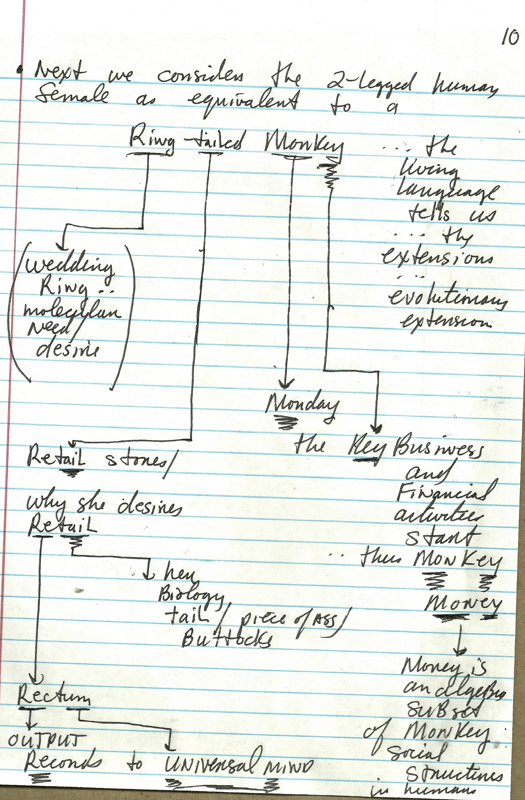 10
• Next we consider the 2-legged human
female as equivalent to a
Ring-tailed Monkey
... the
living
language
tells us
... the
extensions
...
evolutionary
extension
(Wedding
Ring ..
molecular
need/
desire)
Monday
the Key Business
and
Financial
activities
start
... thus MonKey
Money
Retail stores/
why she desires
Retail
her
Biology
tail/piece of ASS/
Buttocks
Money is
an algebra
SUBset
of Monkey
social
structures
in humans
Rectum
OUTPUT
Records to UNIVERSAL MIND